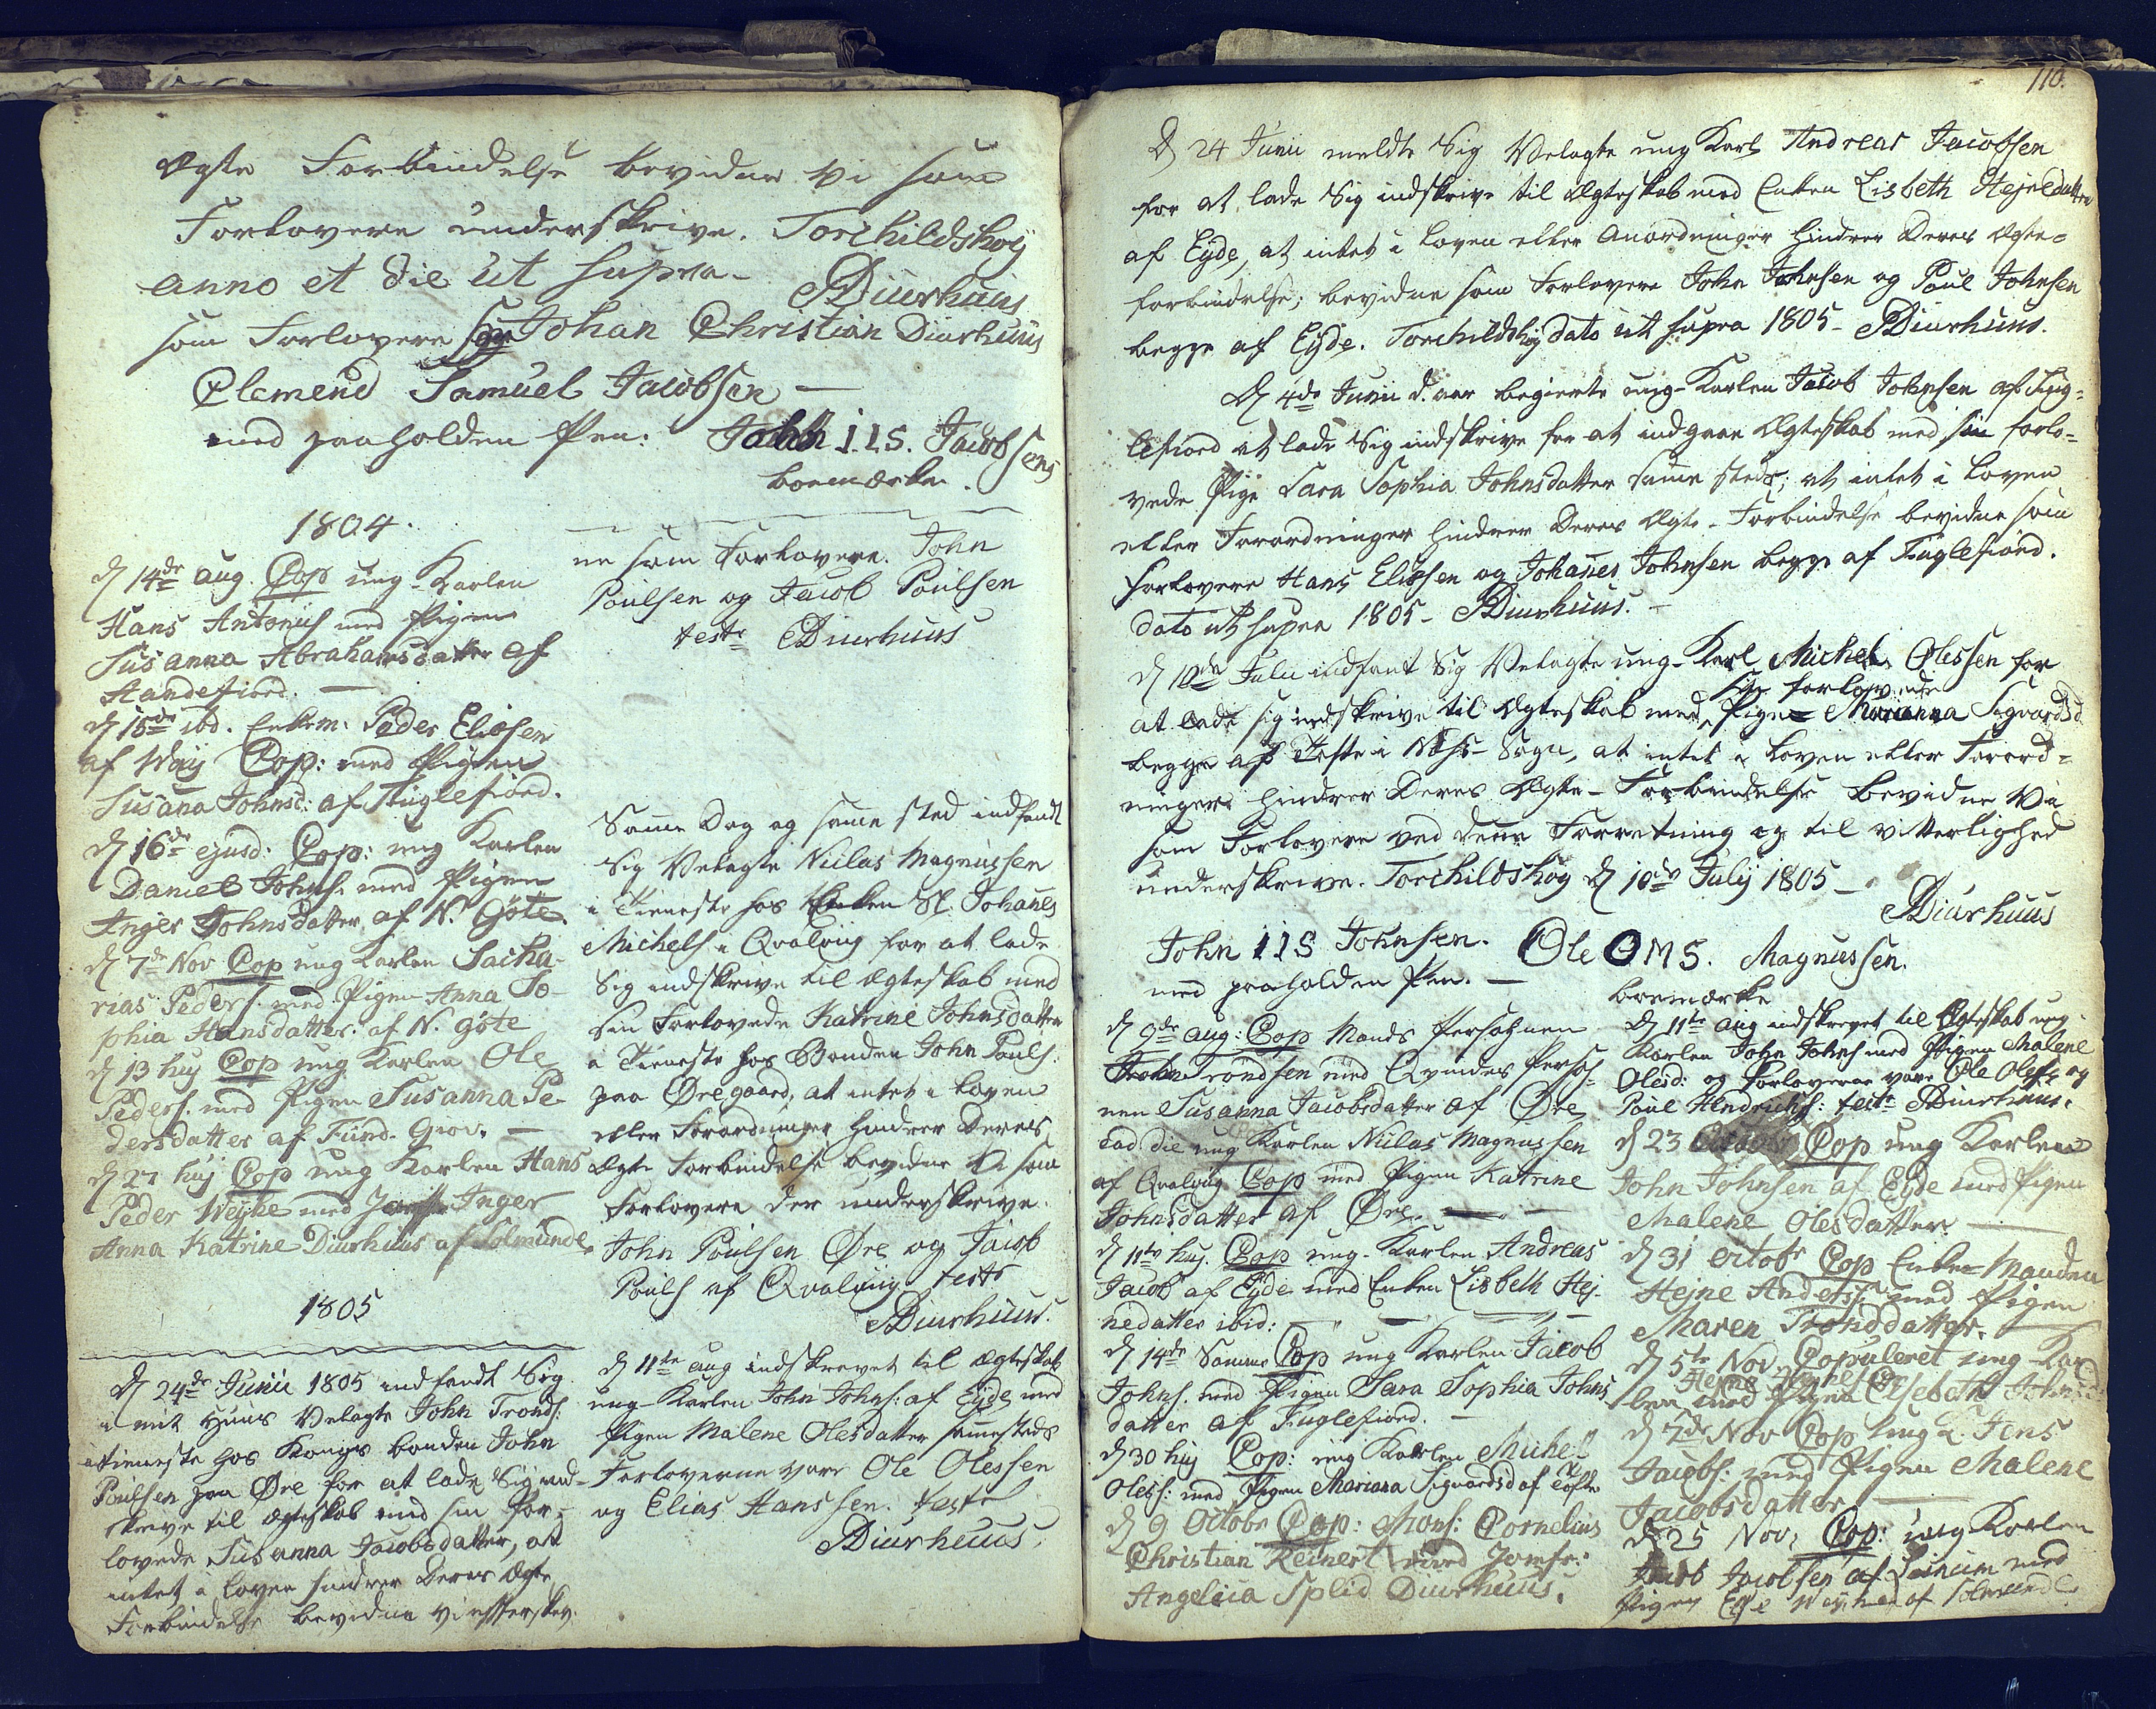 Ægte Forbindelse bevidner vi som
Forlovere underskrive. Torchildshøy
anno et die ut supra.
Diurhuus
som Forlovere Johan Christian Diurhuus
Clemend Samuel Jacobsen —
med paaholden Pen: John I.I.S. Jacobsens
boemærke.
1804.
D 14de aug. Cop ung Karlen
Hans Antonius med Pigen
Susanna Abrahamsdatter af
Andefiord. —
D 15de ibd. Enkem. Peder Eliasen
af Waij Cop: med Pigen
Susana Johnsd: af Fuglefiord.
D 16de ejusd: Cop: ung Karlen
Daniel Johns. med Pigen
Anger Johnsdatter af N. Göte.
D 7de Nov Cop ung Karlen Sacha-
rias Peders. med Pigen Anna So-
phia Hansdatter: af N. göte
D 13 huj Cop ung Karlen Ole
Peders. med Pigen Susanna Pe-
dersdatter af Fund. Giov. —
D 27 huj Cop ung Karlen Hans
Peder Weyhe med Jomfr Inger
Anna Katrine Diurhuus af Solmunde
1805
D 24de Junii 1805 indfandt Sig
i mit Huus Velagte John Tronds:
i tieneste hos Kongs bonden John
Poulsen paa Øre for at lade Sig ind-
skrive til ægteskab med sin for-
lovede Susanna Jacobsdatter, at
intet i Loven hindrer Deres Ægte
Forbindelse bevidne vi efterskrev.
ne som Forlovere. John
Poulsen og Jacob Poulsen
teste Diurhuus
Samme Dag og samme sted indfandt
Sig Velagte Niclas Magnussen
i Tieneste hos Enken Sl. Johanes
Michels i Qvalvig for at lade
Sig indskrive til ægteskab med
sin Forlovede Katrine Johnsdatter
i Tieneste hos Bonden John Pouls.
paa Øregaard, at intet i Loven
eller Forordninger hindrer Deres
Ægte Forbindelse bevidne Vi som
Forlovere der underskrive.
John Poulsen Øre og Jacob
Pouls af Qvalvig teste
Diurhuus.
D 11te aug indskrevet til ægteskab
ung-Karlen John Johns: af Eyde med
Pigen Malene Olesdatter sammesteds
Forloverne vare Ole Olessen
og Elias Hanssen. teste
Diurhuus.
110.
D 24 Junii meldte Sig Velagte ung Karl Andreas Jacobsen
for at lade Sig indskrive til Ægteskab med Enken Lisbeth Hejnedatter
af Eyde, at intet i Loven eller Anordninger hindrer Deres Ægte=
forbindelse, bevidne som Forlovere John Johnsen og Poul Johnsen
begge af Eyde. Torchildshøy dato ut supra 1805 - Diurhuus.
D 4de Junii d. aar begierte ung-Karlen Jacob Johnsen af Fug=
lefiord at lade Sig indskrive for at indgaae Ægteskab med sin forlo=
vede Pige Sara Sophia Johnsdatter samme steds; at intet i Loven
eller Forordninger hindrer Deres Ægte-Forbindelse bevidne som
Forlovere Hans Eliesen og Johanes Johnsen begge af Fuglefiord.
dato ut supra 1805 - Diurhuus. -
D 10de Julii indfant Sig Velagte ung-Karl Michel Olessen for
at lade sig indskrive til Ægteskab med sin forlovede Pige Marianna Sigvardsd
begge af Tofte i Nes-Sogn, at intet i Loven eller Forord=
ninger hindrer Deres Ægte-Forbindelse bevidne Vi
som Forlovere ved denne Forretning og til vitterlighed
underskrive. Torchildshøy D 10de Julij 1805 -
Diurhuus
John IIS Johnsen. Ole OMS. Magnussen.
med paaholden Pen. — boemærke
D 9de aug: Cop Mands Personnen
John Trondsen med Qvindes Perso-
nen Susanna Jacobsdatter af Øre
Eod die ung Karlen Niclas Magnussen
af Qvalvig Cop med Pigen Katrine
Johnsdatter af Øre. —
D 11te huj. Cop ung-Karlen Andreas
Jacobs af Eyde med Enken Lisbeth Hej-
nedatter ibid: —
D 14de Samme Cop ung Karlen Jacob
Johns. med Pigen Sara Sophia Johns
datter af Fuglefiord. —
D 30 huj Cop: ung Karlen Michel
Oless: med Pigen Mariana Sigvardsd af Tofte
D 9 Octobr Cop: Mons: Cornelius
Christian Reinert med Jomfr:
Angelica Splid Diurhuus.
D 11te Aug indskrevet til Ægteskab ung-
Karlen John Johns med Pigen Malene
Olesd: og Forloverne vare Ole Oless og
Poul Hendrichs: teste Diurhuus.
D 23 October Cop ung Karlen
John Johnsen af Eyde med Pigen
Malene Olesdatter. —
D 31 octobr Cop Enke-Manden
Hejne Anderss. med Pigen
Maren Tronddatter. —
D 5te Nov. Copuleret ung-Kar
len Hejne med Pigen Elsebeth Johnsd:
D 7de Nov Cop ung K. Jens
Jacobs: med Pigen Malene
Jacobsdatter —
D 25 Nov: Cop: ung Karlen
Jacob Jacobsen af med
Pigen Else Weyhe af Solmunde.